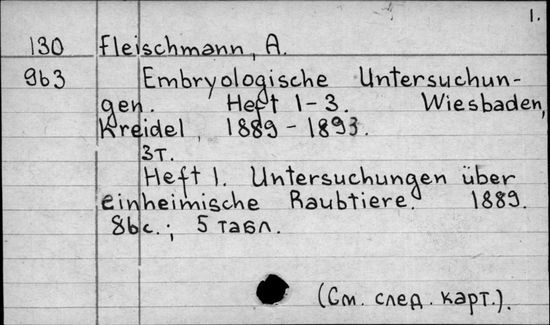 1.
130 Fleischmann, A.
963 Embryologische Untersuchun-
gen. Heft 1-3. Wiesbaden,
Kreidel, 1889-1893.
3т.
Heft 1. Untersuchungen über
einheimische Raubtiere. 1889.
86с.; 5 табл.
(См. след. карт.).